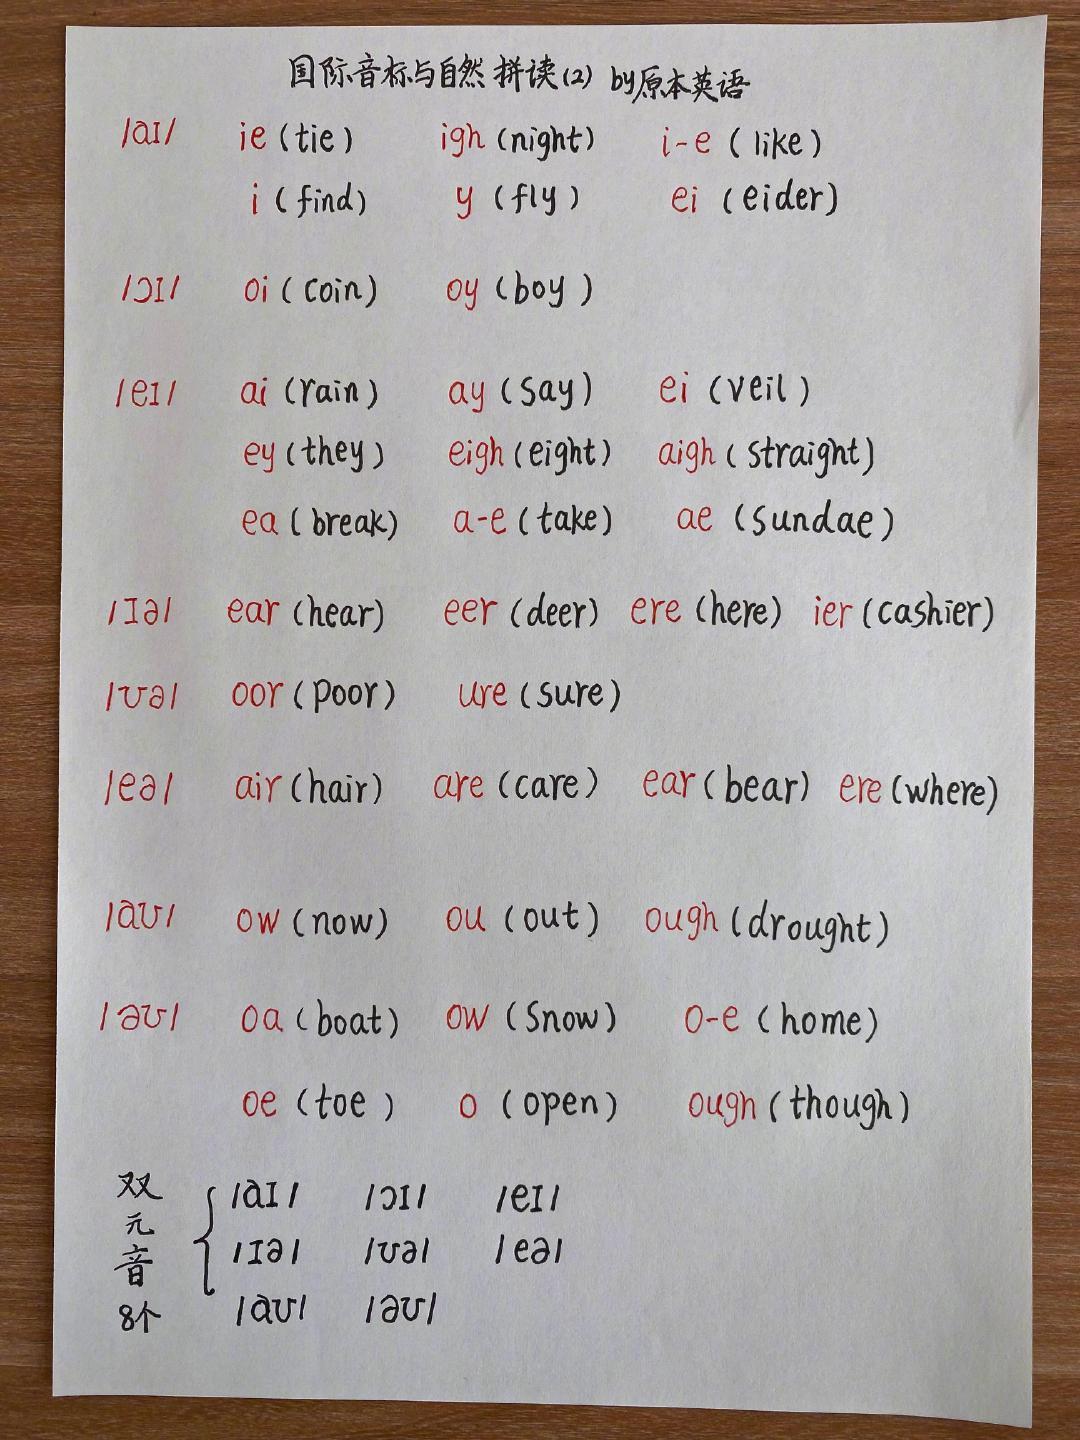 国际音标与自然拼读(2) by原本英语
/aɪ/ ie (tie) igh (night) i-e (like)
i (find) y (fly) ei (eider)
/ɔɪ/ oi (coin) oy (boy)
/eɪ/ ai (rain) ay (say) ei (veil)
ey (they) eigh (eight) aigh (straight)
ea (break) a-e (take) ae (sundae)
/ɪə/ ear (hear) eer (deer) ere (here) ier (cashier)
/ʊə/ oor (poor) ure (sure)
/eə/ air (hair) are (care) ear (bear) ere (where)
/aʊ/ ow (now) ou (out) ough (drought)
/əʊ/ oa (boat) ow (snow) o-e (home)
oe (toe) o (open) ough (though)
双元音8个
/aɪ/ /ɔɪ/ /eɪ/
/ɪə/ /ʊə/ /eə/
/aʊ/ /əʊ/